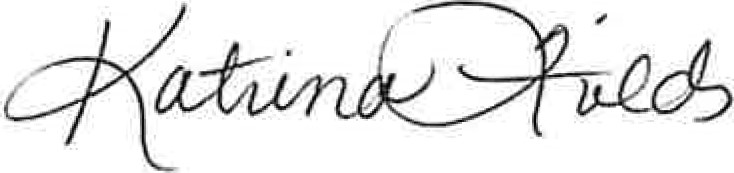 Katrina Fields